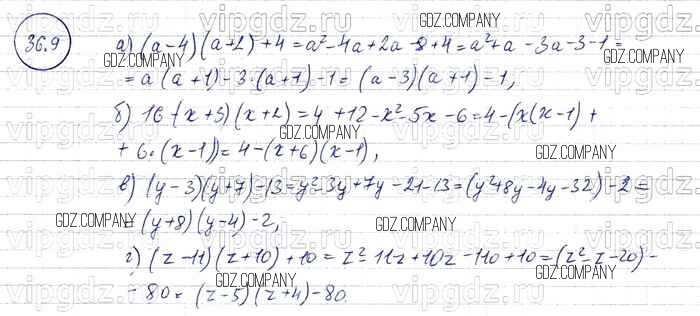 36.9
а) (a-4)(a+2)+4=a²-4a+2a-8+4=a²+a-3a-3-1=
=a(a+1)-3·(a+1)-1=(a-3)(a+1)-1,
б) 16-(x+3)(x+2)=4+12-x²-5x-6=4-(x(x-1)+
+6·(x-1))=4-(x+6)(x-1),
в) (y-3)(y+7)-13=y²-3y+7y-21-13=(y²+8y-4y-32)-2=
=(y+8)(y-4)-2,
г) (z-11)(z+10)+10=z²-11z+10z-110+10=(z²-z-20)-
-80=(z-5)(z+4)-80
GDZ.COMPANY
GDZ.COMPANY
GDZ.COMPANY
GDZ.COMPANY
GDZ.COMPANY
GDZ.COMPANY
GDZ.COMPANY
GDZ.COMPANY
vipgdz.ru
vipgdz.ru
vipgdz.ru